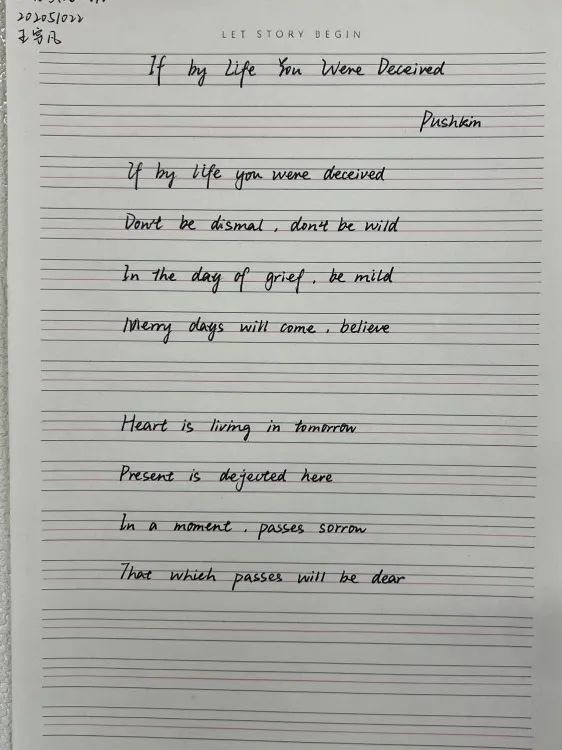 202051022
LET STORY BEGIN
If by Life You Were Deceived
Pushkin
If by life you were deceived
Don't be dismal, don't be wild
In the day of grief, be mild
Merry days will come, believe
Heart is living in tomorrow
Present is dejected here
In a moment, passes sorrow
That which passes will be dear